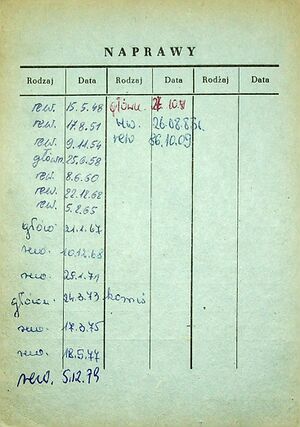 NAPRAWY
Rodzaj Data Rodzaj Data Rodżaj Data
rew. 15.5.48 główn.
rew. 17.8.51 rew.
rew. 9.11.54 rew
główn. 25.6.58
rew. 8.6.60
rew. 22.12.62
rew. 5.2.65
główn 21.1.67
rew. 10.12.68
rew. 25.1.71
główn. 24.3.73
rew. 17.3.75
rew. 18.5.77
rew. 5.12.79